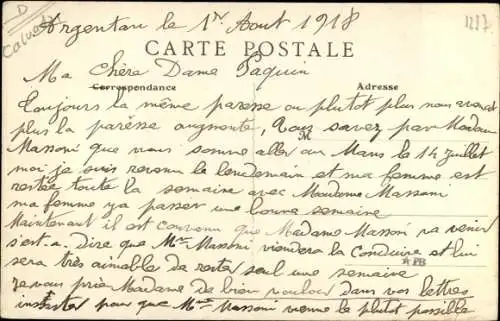 D
Calvados
1217
Argentan le 1er Aout 1918
CARTE POSTALE
Ma Chère Dame Paquin
Correspondance
Adresse
Toujours la même paresse ou plutot plus nous avons
plus la parêsse augmente, Vous savez par Madame
M
Massoni que nous somme aller au Mans le 14 Juillet
moi je suis revenu le lendemain et ma femme est
restée toute la semaine avec Madame Massoni
ma femme y a passer une bonne semaine
Maintenant il est convenu que Madame Massoni va venir
s'est-a-dire que Mr Massoni viendera la Conduire et lui
sera très aimable de rester seul une semaine
PB
je vous prie Madame de bien vouloir dans vos lettres
insister pour que Mme Massoni vienne le plutot possible